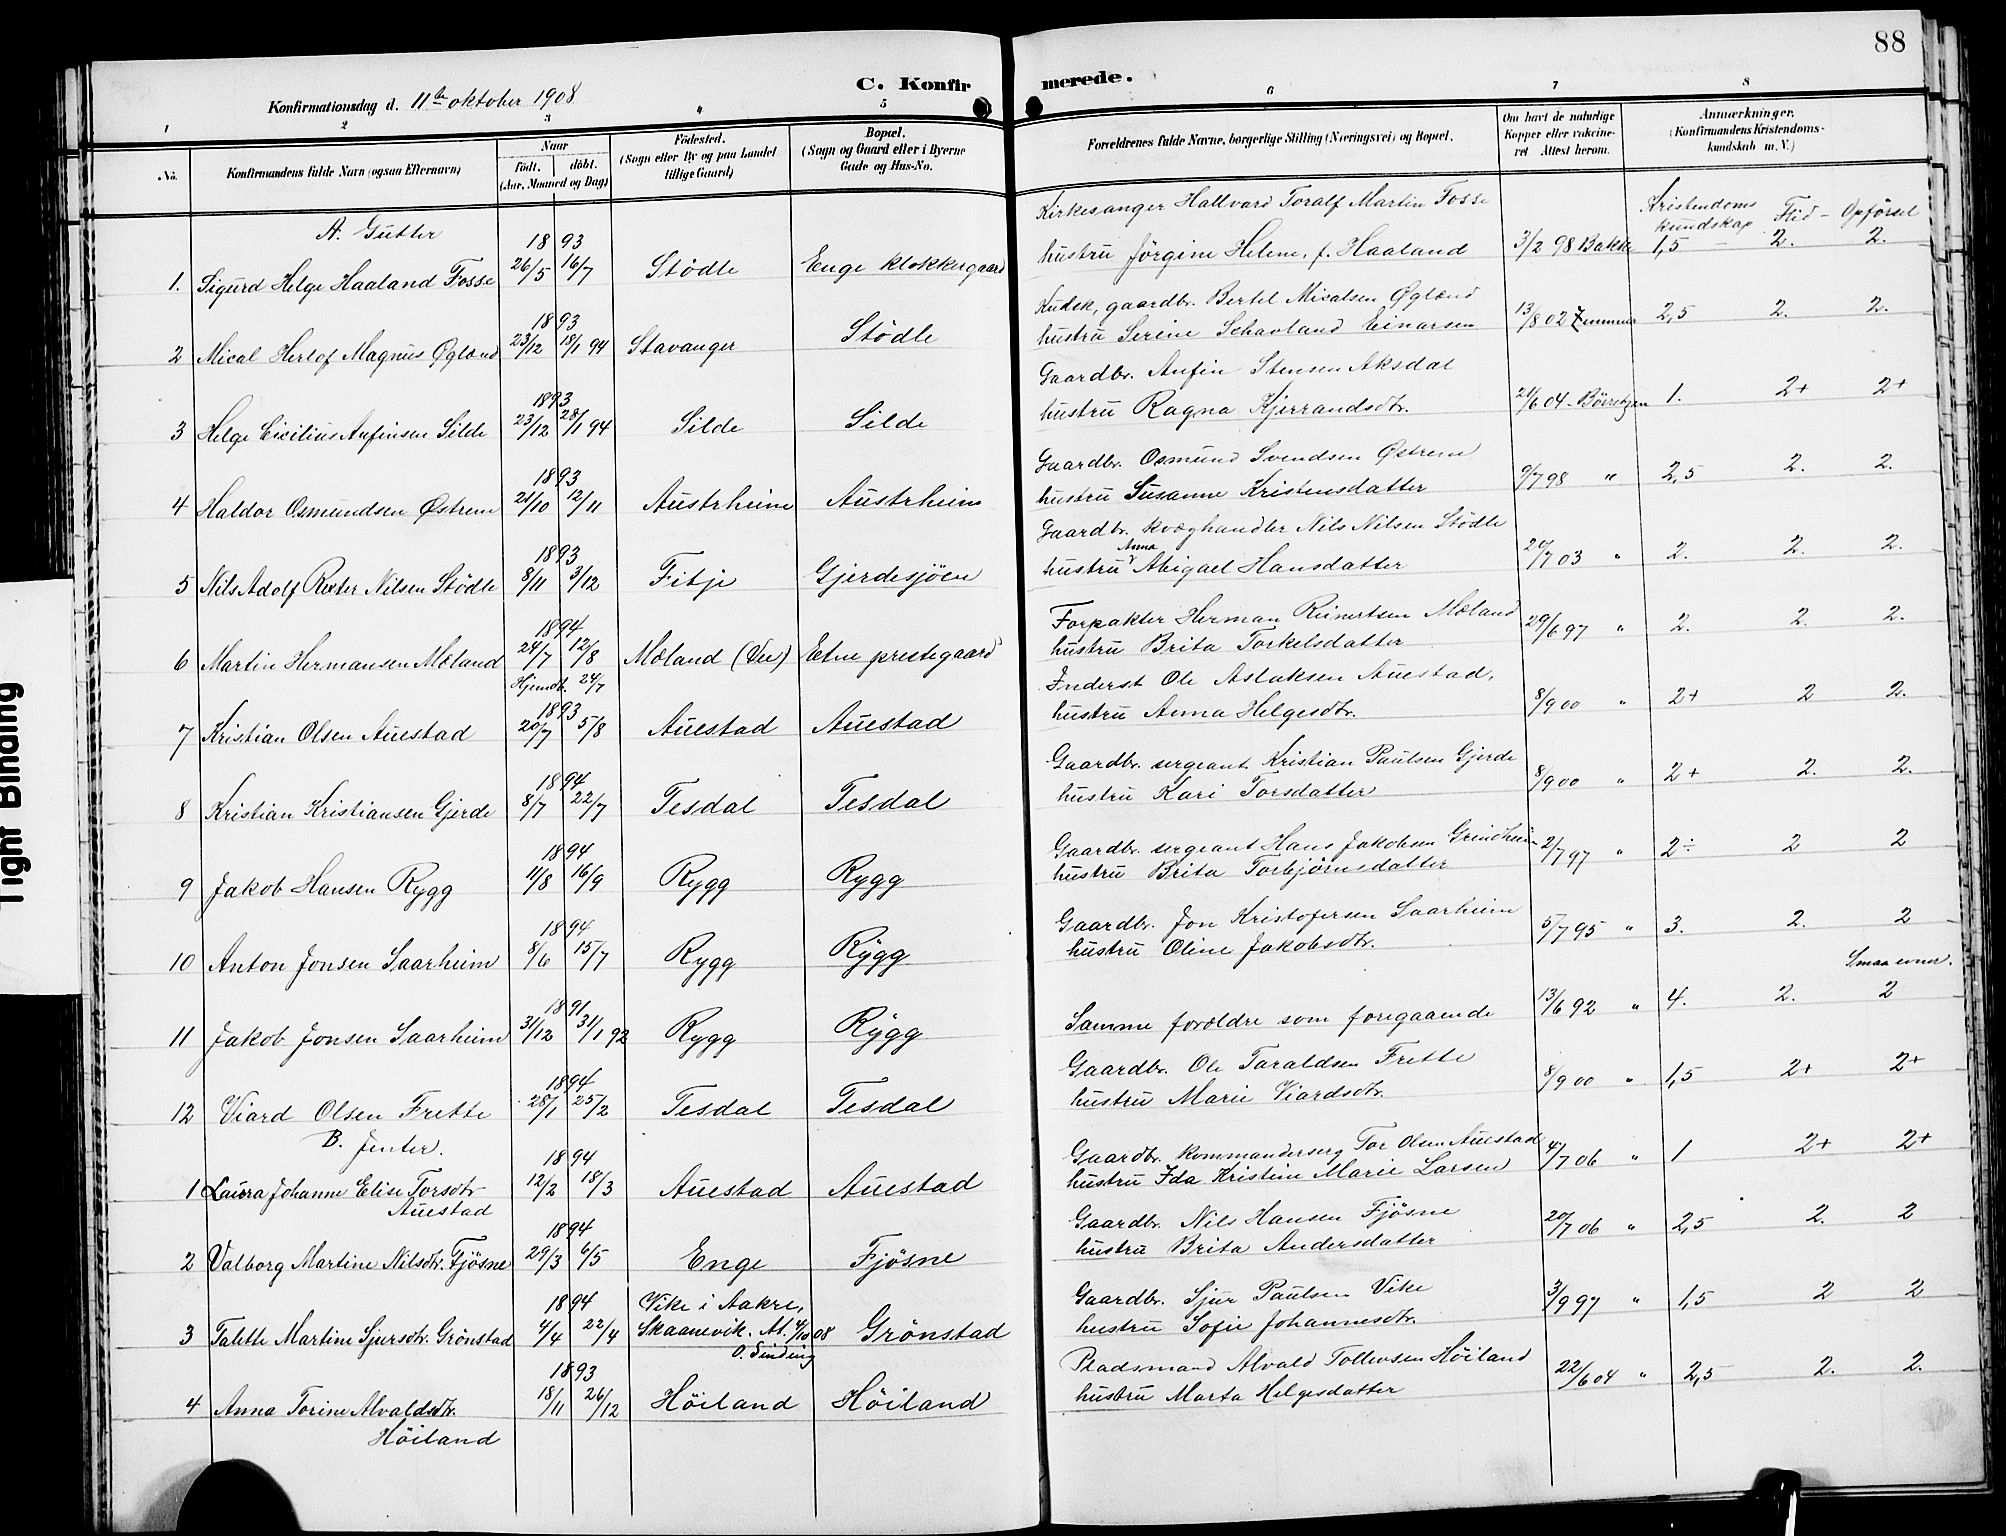 88
C. Konfirmerede.
Konfirmationsdag d. 11te oktober 1908
1 2 3 4 5 6 7 8
No.
Konfirmandens fulde Navn (ogsaa Efternavn)
Naar
födt. döbt.
(Aar, Maaned og Dag)
Födested.
(Sogn eller By og paa Landet
tillige Gaard)
Bopæl.
(Sogn og Gaard eller i Byerne
Gade og Hus-No.
Forældrenes fulde Navne, borgerlige Stilling (Næringsvei) og Bopæl.
Om havt de naturlige
Kopper eller vakcine-
ret Attest herom.
Anmærkninger.
(Konfirmandens Kristendoms-
kundskab m. V.)
Kristendoms
kundskap Flid - Opførsel
A. Gutter
Kirkesanger Hallvard Toralf Martin Fosse
1893
1. Sigurd Helge Haaland Fosse 26/5 16/7 Stødle Enge klokkergaard hustru Jörgine Helene, f. Haaland 3/2 98 Bakke 1,5 2. 2.
Kudsk, gaardbr. Bertel Micalsen Øglænd
1893
2 Mical Herlof Magnus Øglænd 23/12 18/1 94 Stavanger Stödle hustru Serine Schavland Einarsen 13/8 02 2,5 2. 2.
Gaardbr. Anfin Stensen Aksdal
1893
3 Helge Cicilius Anfinsen Silde 23/12 28/1 94 Silde Silde hustru Ragna Kjerrandsdtr. 21/6 04 - Börretzen 1. 2+ 2+
Gaardbr. Osmund Svendsen Østrem
1893
4 Haldor Osmundsen Østrem 21/10 12/11 Austrheim Austrheim hustru Susanne Kristensdatter 9/7 98 " 2,5 2. 2.
Gaardbr. kvæghandler Nils Nilsen Stödle
1893
5 Nils Adolf Nilsen Stödle 8/11 3/12 Fitje Gjerdesjöen hustru Anna Abigael Hansdatter 20/7 03 " 2. 2. 2.
Forpakter Herman Reinertsen Mæland
1894
6 Martin Hermansen Mæland 24/7 12/8 Mæland (Vee) Etne prestegaard hustru Brita Torkelsdatter 29/6 97 " 2. 2. 2.
Hjemdt. 24/7
Inderst Ole Aslaksen Auestad,
1893
7 Kristian Olsen Auestad 20/7 5/8 Auestad Auestad hustru Anna Helgesdtr. 8/9 00 " 2+ 2 2.
Gaardbr. sergeant Kristian Paulsen Gjerde
1894
8 Kristian Kristiansen Gjerde 8/7 22/7 Tesdal Tesdal hustru Kari Torsdatter 8/9 00 " 2+ 2. 2.
Gaardbr. sergeant Hans Jakobsen Grindheim
1894
9 Jakob Hansen Rygg 11/8 16/9 Rygg Rygg hustru Brita Torbjörnsdatter 2/7 97 " 2÷ 2 2
Gaardbr. Jon Kristofersen Saarheim
1894
10 Anton Jonsen Saarheim 8/6 15/7 Rygg Rygg hustru Oline Jakobsdtr. 5/7 95 " 3. 2. 2
Smaa evner.
1891
11 Jakob Jonsen Saarheim 31/12 31/1 92 Rygg Rygg Samme forældre som foregaaende 13/6 92 " 4. 2. 2
Gaardbr. Ole Taraldsen Frette
1894
12 Viard Olsen Frette 28/1 25/2 Tesdal Tesdal hustru Marie Viardsdtr. 8/9 00 " 1,5 2+ 2+
B. Jenter.
Gaardbr. kommandersерg Tor Olsen Auestad
1894
1 Laura Johanne Elise Torsdtr 12/2 18/3 Auestad Auestad hustru Ida Kristine Marie Larsen 4/7 06 " 1 2+ 2+
Auestad
Gaardbr. Nils Hansen Fjösne
1894
2 Valborg Martine Nilsdtr. Fjösne 29/3 6/5 Enge Fjösne hustru Brita Andersdatter 20/7 06 " 2,5 2. 2
Gaardbr. Sjur Paulsen Vike
1894 Vike i Aakre,
3 Talette Martine Sjursdtr. Grönstad 4/4 22/4 Skaanevik. At. 4/10 08 Grönstad hustru Sofie Johannesdtr. 3/9 97 " 1,5 2 2
O. Sinding
Pladsmand Alvald Tollevsen Höiland
1893
4 Anna Torine Alvaldsdtr. 18/11 26/12 Höiland Höiland hustru Marta Helgesdatter 22/6 04 " 2,5 2. 2.
Höiland
Tight Binding